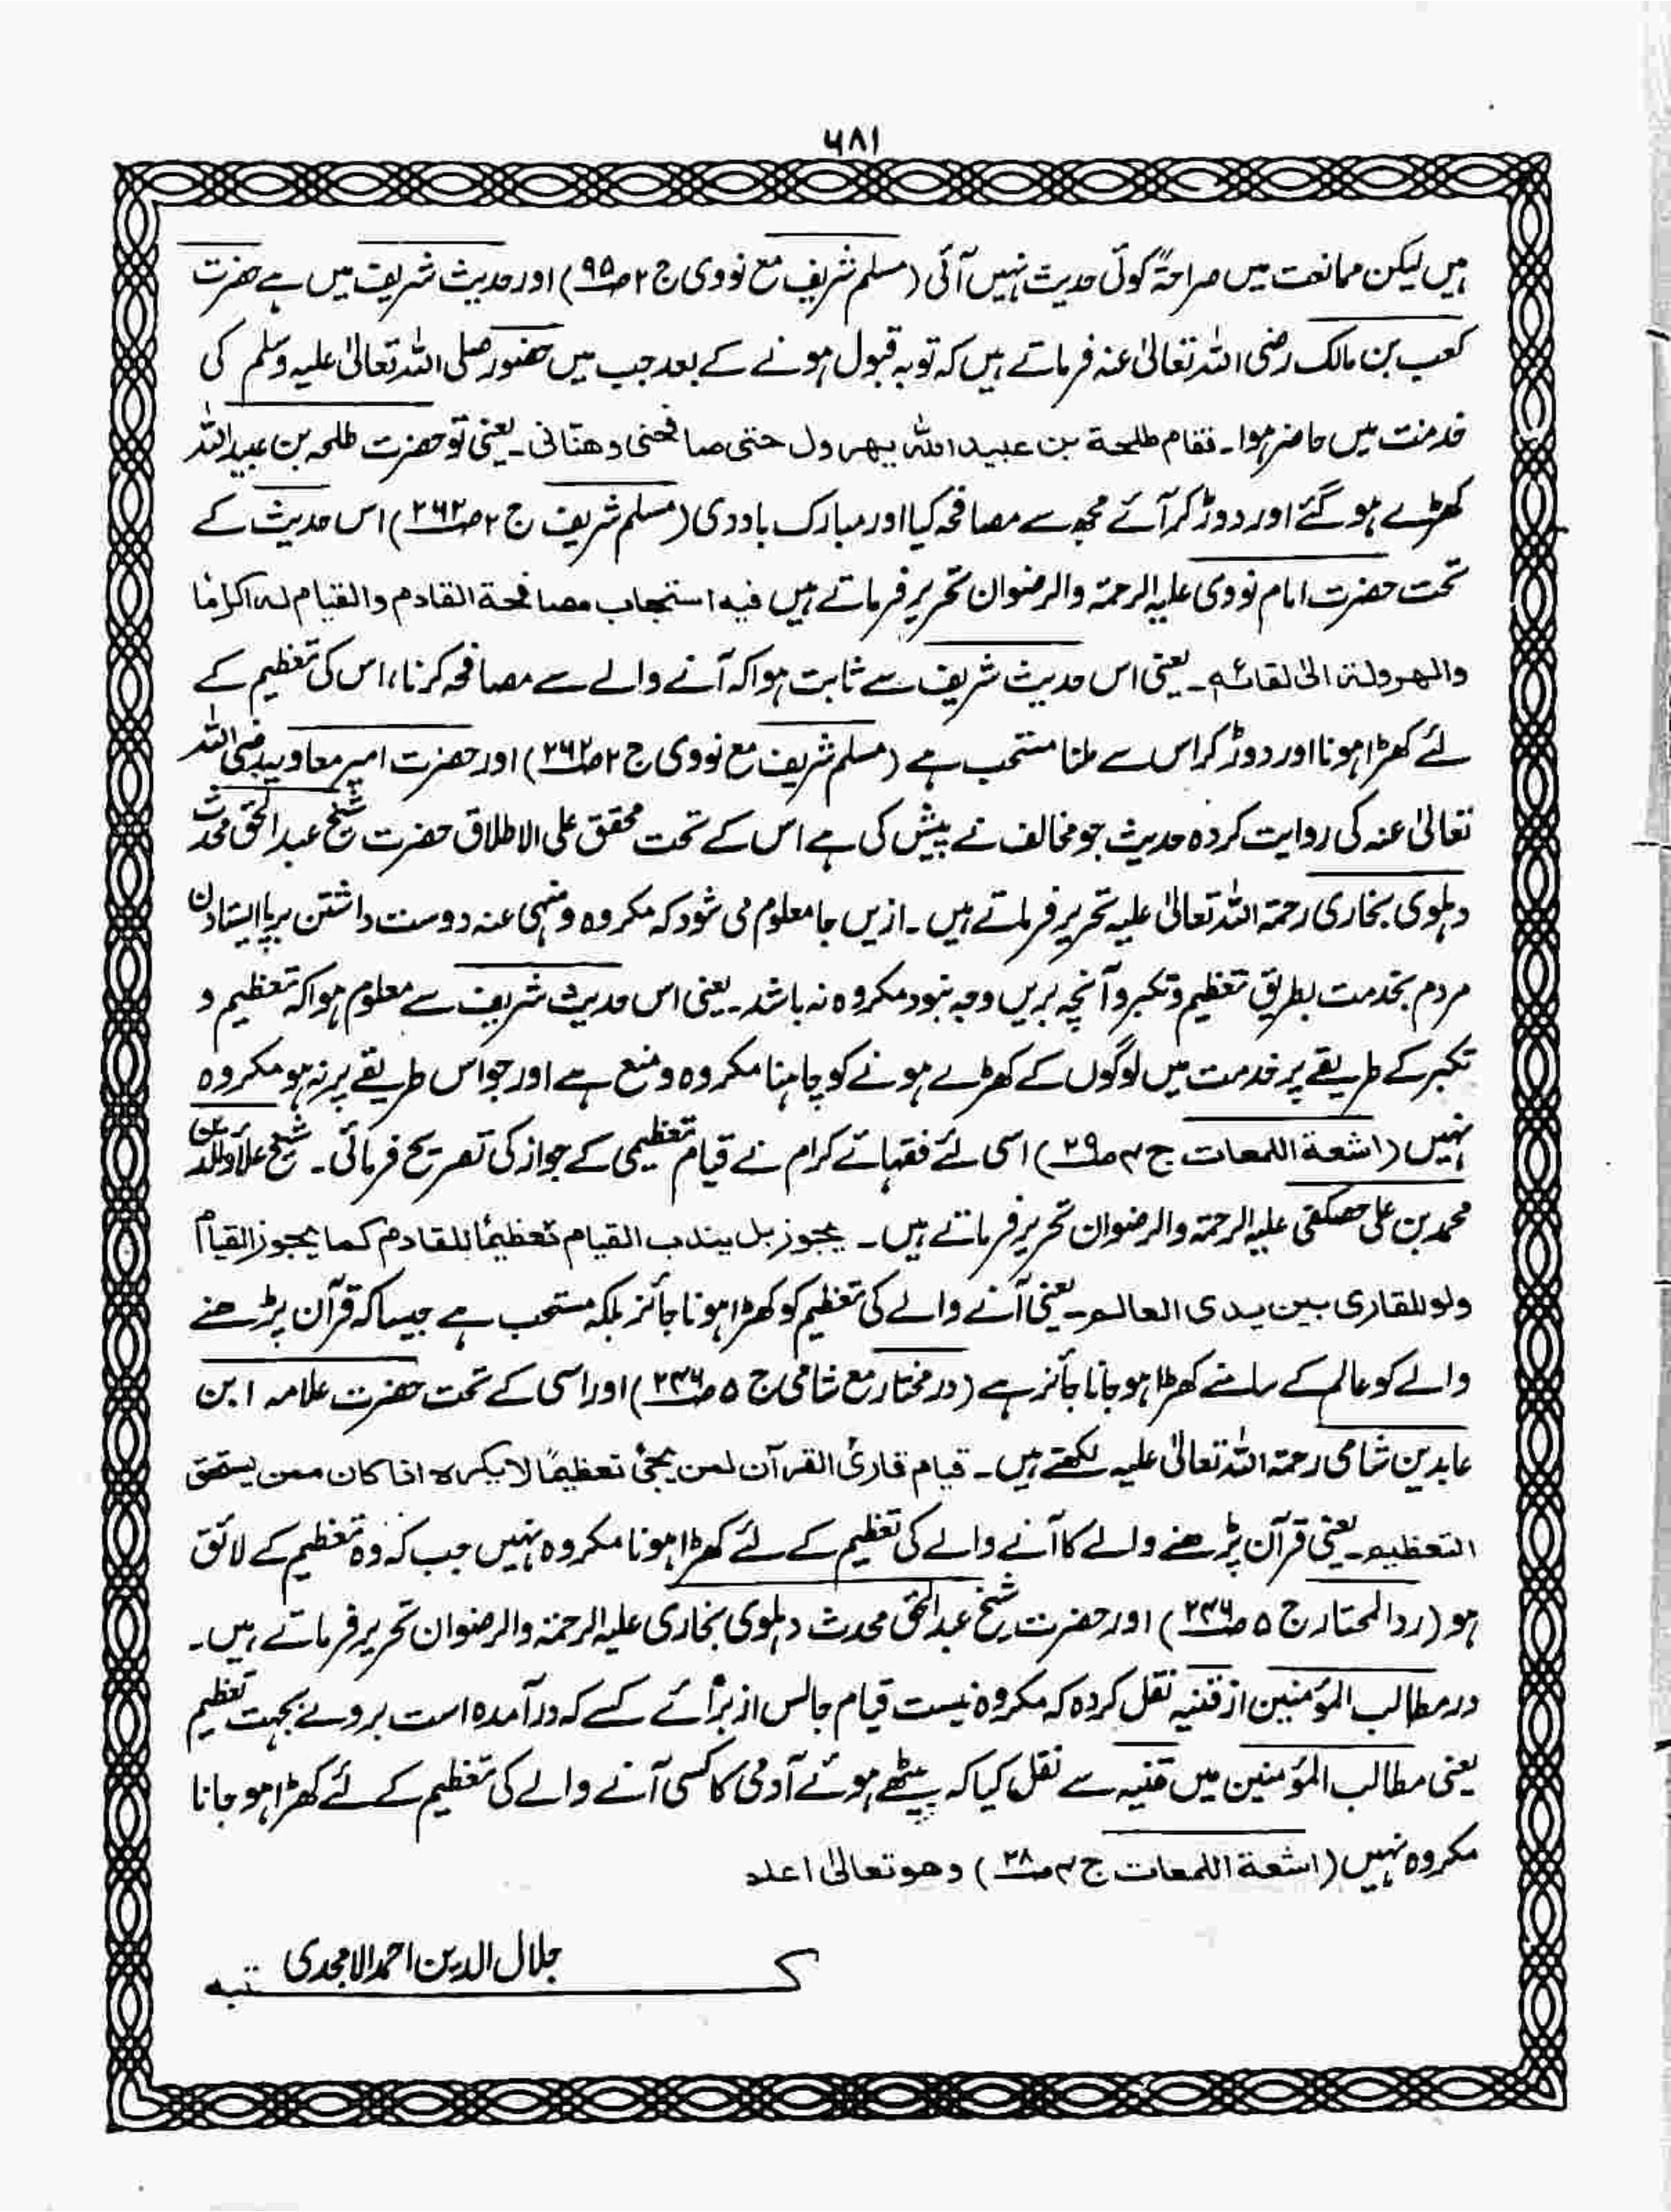 ۶۸۱
ہیں لیکن ممانعت میں صراحۃً کوئی حدیث نہیں آئی (مسلم شریف مع نووی ج ۲ ص ۹۵) اور حدیث شریف میں ہے حضرت
کعب بن مالک رضی اللہ تعالیٰ عنہ فرماتے ہیں کہ توبہ قبول ہونے کے بعد جب میں حضور صلی اللہ تعالیٰ علیہ وسلم کی
خدمت میں حاضر ہوا۔ فقام طلحة بن عبيد الله يهرول حتى صافحنى وهنانى۔ یعنی تو حضرت طلحہ بن عبیداللہ
کھڑے ہو گئے اور دوڑ کر آئے مجھ سے مصافحہ کیا اور مبارک باد دی (مسلم شریف ج ۲ ص ۳۶۲) اس حدیث کے
تحت حضرت امام نووی علیہ الرحمۃ والرضوان تحریر فرماتے ہیں فيه استحباب مصافحة القادم والقيام له اكراما
والهرولة الى لقائه۔ یعنی اس حدیث شریف سے ثابت ہوا کہ آنے والے سے مصافحہ کرنا، اس کی تعظیم کے
لئے کھڑا ہونا اور دوڑ کر اس سے ملنا مستحب ہے (مسلم شریف مع نووی ج ۲ ص ۳۶۲) اور حضرت امیر معاویہ رضی اللہ
تعالیٰ عنہ کی روایت کردہ حدیث جو مخالف نے پیش کی ہے اس کے تحت محقق علی الاطلاق حضرت شیخ عبدالحق محدث
دہلوی بخاری رحمۃ اللہ تعالیٰ علیہ تحریر فرماتے ہیں۔ ازیں جا معلوم می شود کہ مکروہ ومنہی عنہ دوست داشتن برپا ایستادن
مردم بخدمت بطریق تعظیم وتکبر وآنچہ بریں وجہ نبود مکروہ نہ باشد۔ یعنی اس حدیث شریف سے معلوم ہوا کہ تعظیم و
تکبر کے طریقے پر خدمت میں لوگوں کے کھڑے ہونے کو چاہنا مکروہ ومنع ہے اور جو اس طریقے پر نہ ہو مکروہ
نہیں (اشعة اللمعات ج ۴ ص ۲۹) اسی لئے فقہائے کرام نے قیام تعظیمی کے جواز کی تصریح فرمائی۔ شیخ علاؤالدین
محمد بن علی حصکفی علیہ الرحمۃ والرضوان تحریر فرماتے ہیں۔ يجوز بل يندب القيام تعظيمًا للقادم كما يجوز القيام
ولو للقارى بين يدى العالم۔ یعنی آنے والے کی تعظیم کو کھڑا ہونا جائز بلکہ مستحب ہے جیسا کہ قرآن پڑھنے
والے کو عالم کے سامنے کھڑا ہو جانا جائز ہے (درمختار مع شامی ج ۵ ص ۲۴۶) اور اسی کے تحت حضرت علامہ ابن
عابدین شامی رحمۃ اللہ تعالیٰ علیہ لکھتے ہیں۔ قيام قارئ القرآن لمن يجئ تعظيمًا لا يكره اذا كان ممن يستحق
التعظيم۔ یعنی قرآن پڑھنے والے کا آنے والے کی تعظیم کے لئے کھڑا ہونا مکروہ نہیں جب کہ وہ تعظیم کے لائق
ہو (ردالمحتار ج ۵ ص ۲۴۶) اور حضرت شیخ عبدالحق محدث دہلوی بخاری علیہ الرحمۃ والرضوان تحریر فرماتے ہیں۔
در مطالب المؤمنین از قنیہ نقل کردہ کہ مکروہ نیست قیام جالس از برائے کسے کہ درآمدہ است بروے بجہت تعظیم
یعنی مطالب المؤمنین میں قنیہ سے نقل کیا کہ بیٹھے ہوئے آدمی کا کسی آنے والے کی تعظیم کے لئے کھڑا ہو جانا
مکروہ نہیں (اشعة اللمعات ج ۴ ص ۲۸) وهو تعالىٰ اعلم
جلال الدین احمد الامجدی
کتبہ